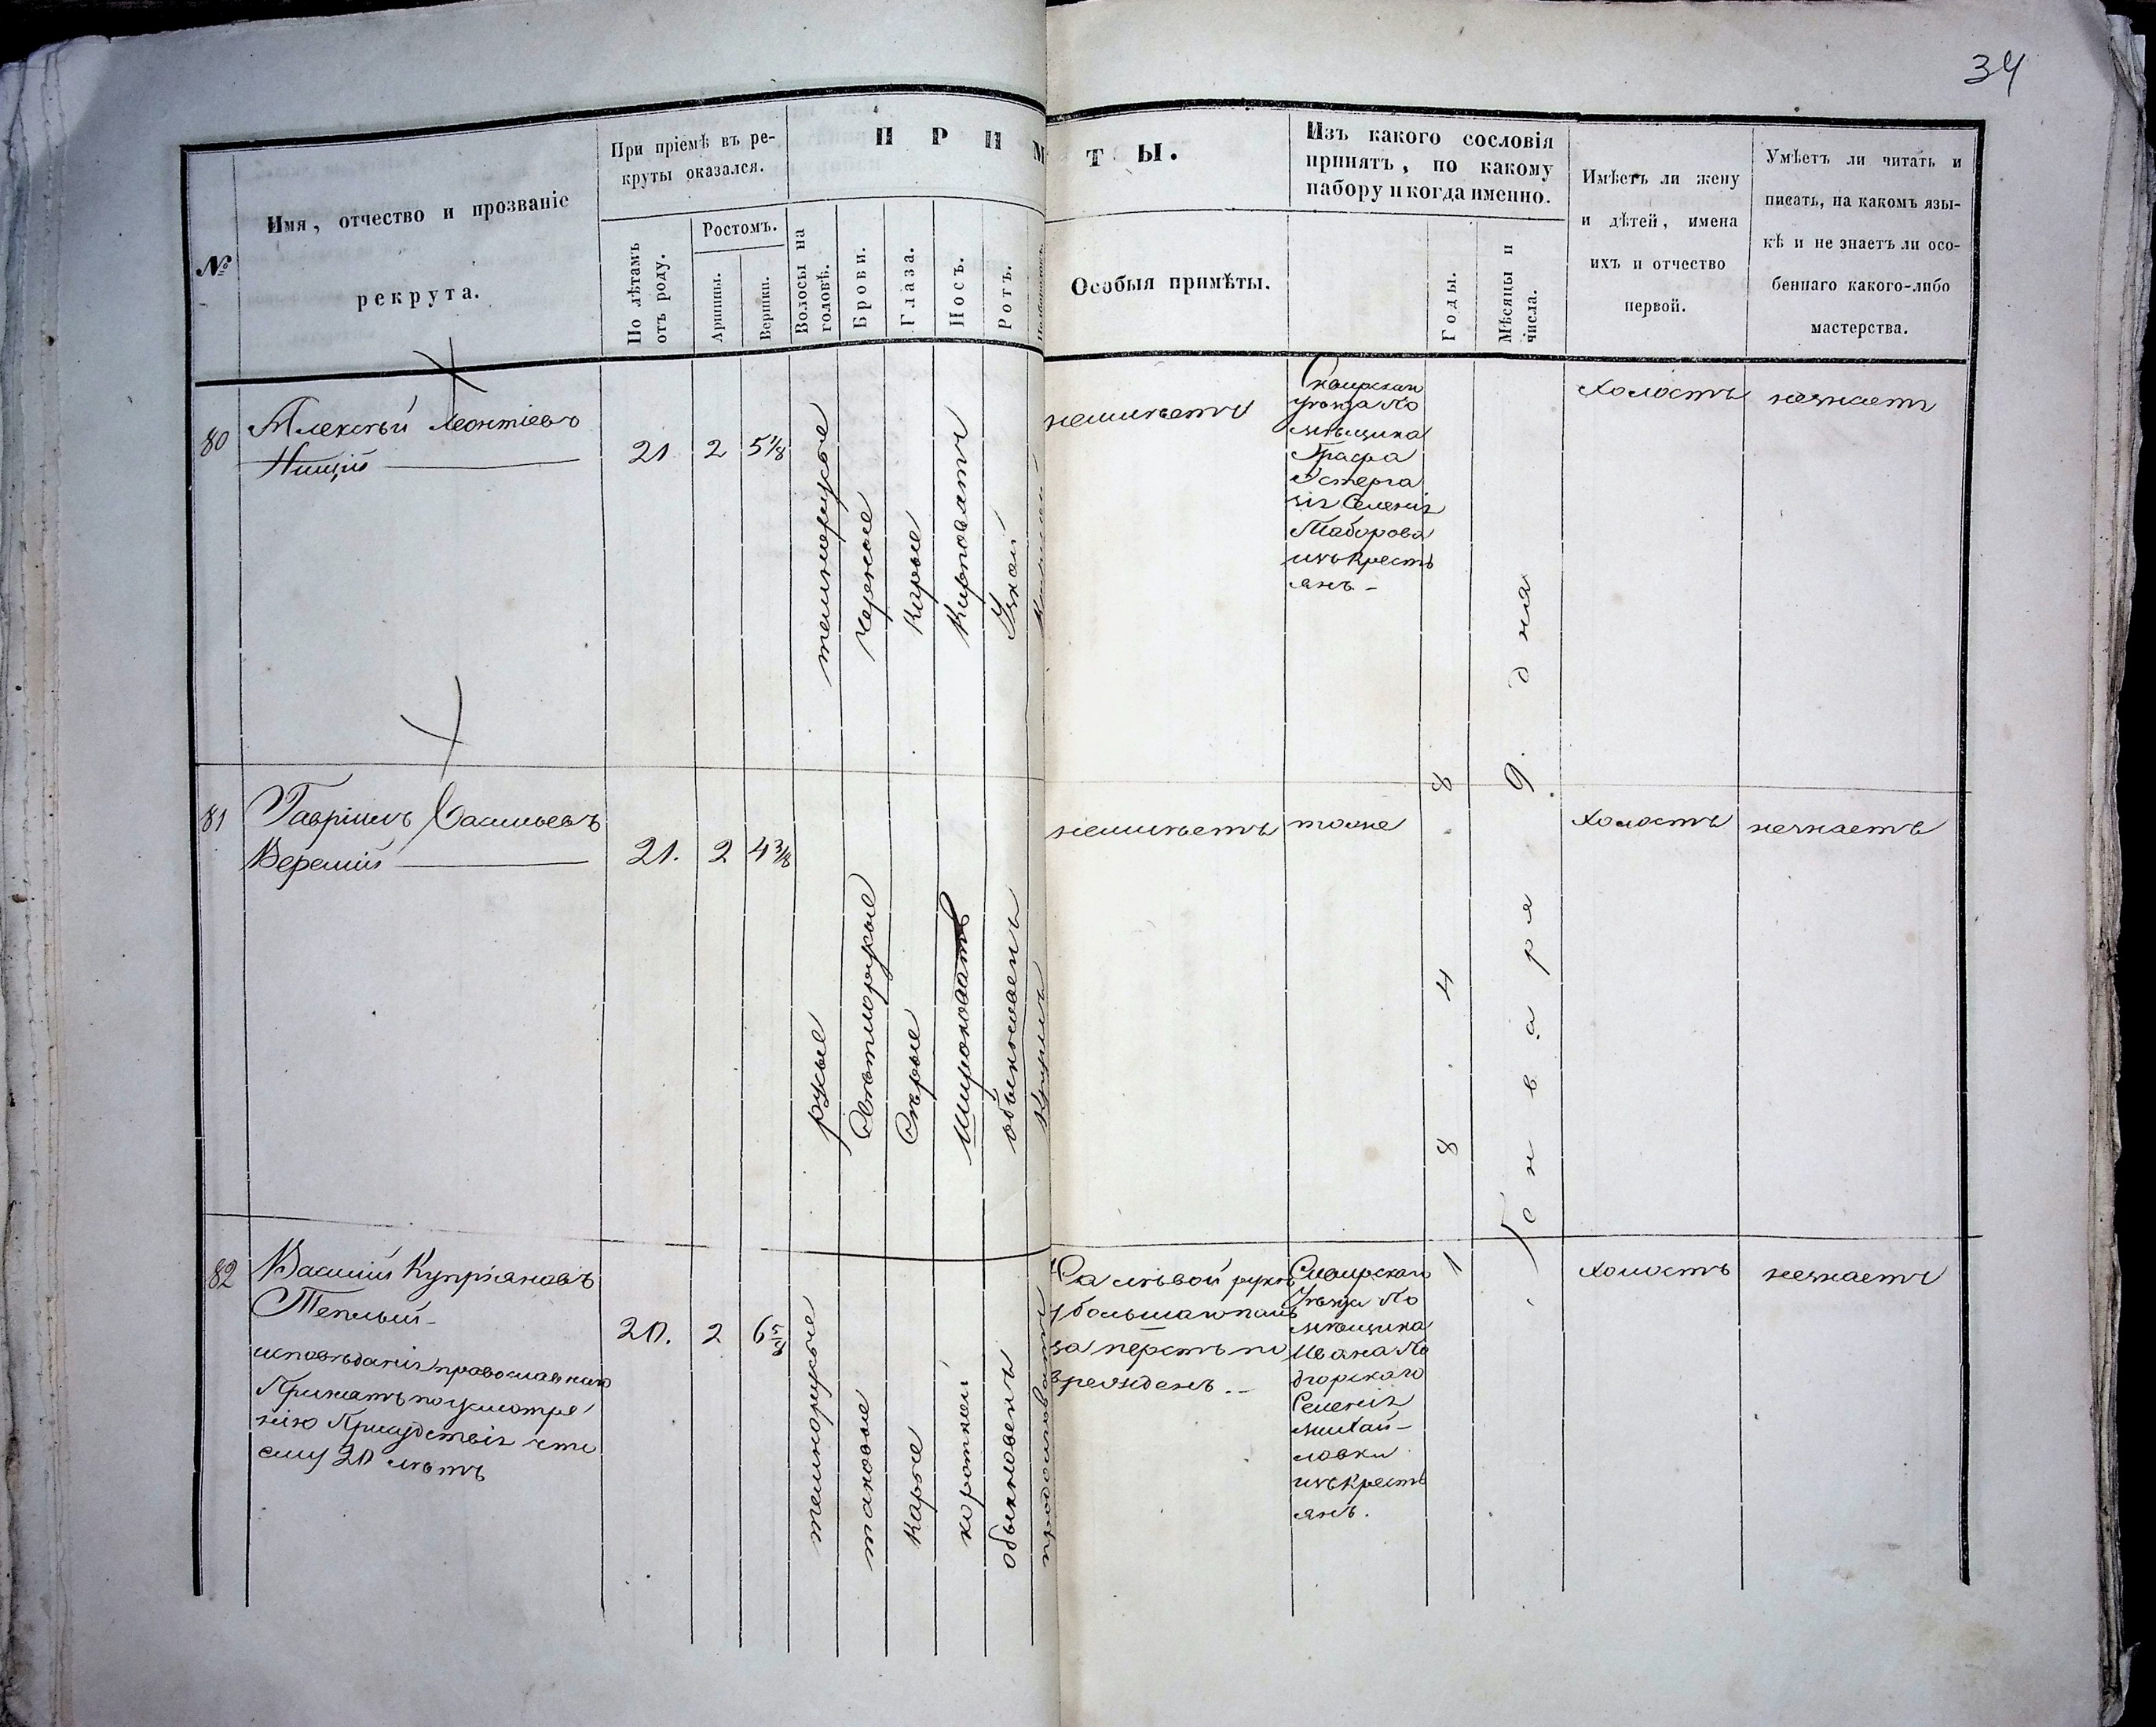 34
№
Имя, отчество и прозваніе
рекрута.
При пріемѣ въ ре-
круты оказался.
По лѣтамъ
отъ роду.
Ростомъ.
Аршины.
Вершки.
П Р И М
Волосы на
головѣ.
Брови.
Глаза.
Носъ.
Ротъ.
Т Ы.
Особыя примѣты.
Изъ какого сословія
принятъ, по какому
набору и когда именно.
Годы.
Мѣсяцы и
числа.
Имѣетъ ли жену
и дѣтей, имена
ихъ и отчество
первой.
Умѣетъ ли читать и
писать, на какомъ язы-
кѣ и не знаетъ ли осо-
беннаго какого-либо
мастерства.
80
Алексѣй Леонтіевъ
Нищій
21
2
5 1/8
темнорусые
черные
Карые
Курноватъ
Узкой
неимѣетъ
Сквирскаго
уѣзда По
мѣщика
Графа
Естерга
зія Селенія
Таборова
изъ крестъ
янъ -
холостъ
незнаетъ
81
Гавріилъ Васильевъ
Веремій
21.
2
4 3/8
русые
Свѣтлорусые
Сѣрые
Широковатъ
обыкновенъ
неимѣетъ
тоже
холостъ
незнаетъ
1 8 4 8
Генваря 9. дня
82
Василій Купріяновъ
Теплый -
исповѣданія православнаго
Принятъ по усмотре
нію Присудствія что
ему 20 лѣтъ
20.
2
6 5/8
темнорусые
таковые
Карые
короткій
обыкновенъ
продолговатъ
На лѣвой рукѣ
большаго паль
ца перстъ по
врежденъ. -
Сквирскаго
Уѣзда По
мѣщика
Ивана По
дгорскаго
Селенія
Михай-
ловки
изъ крестъ
янъ.
холостъ
незнаетъ